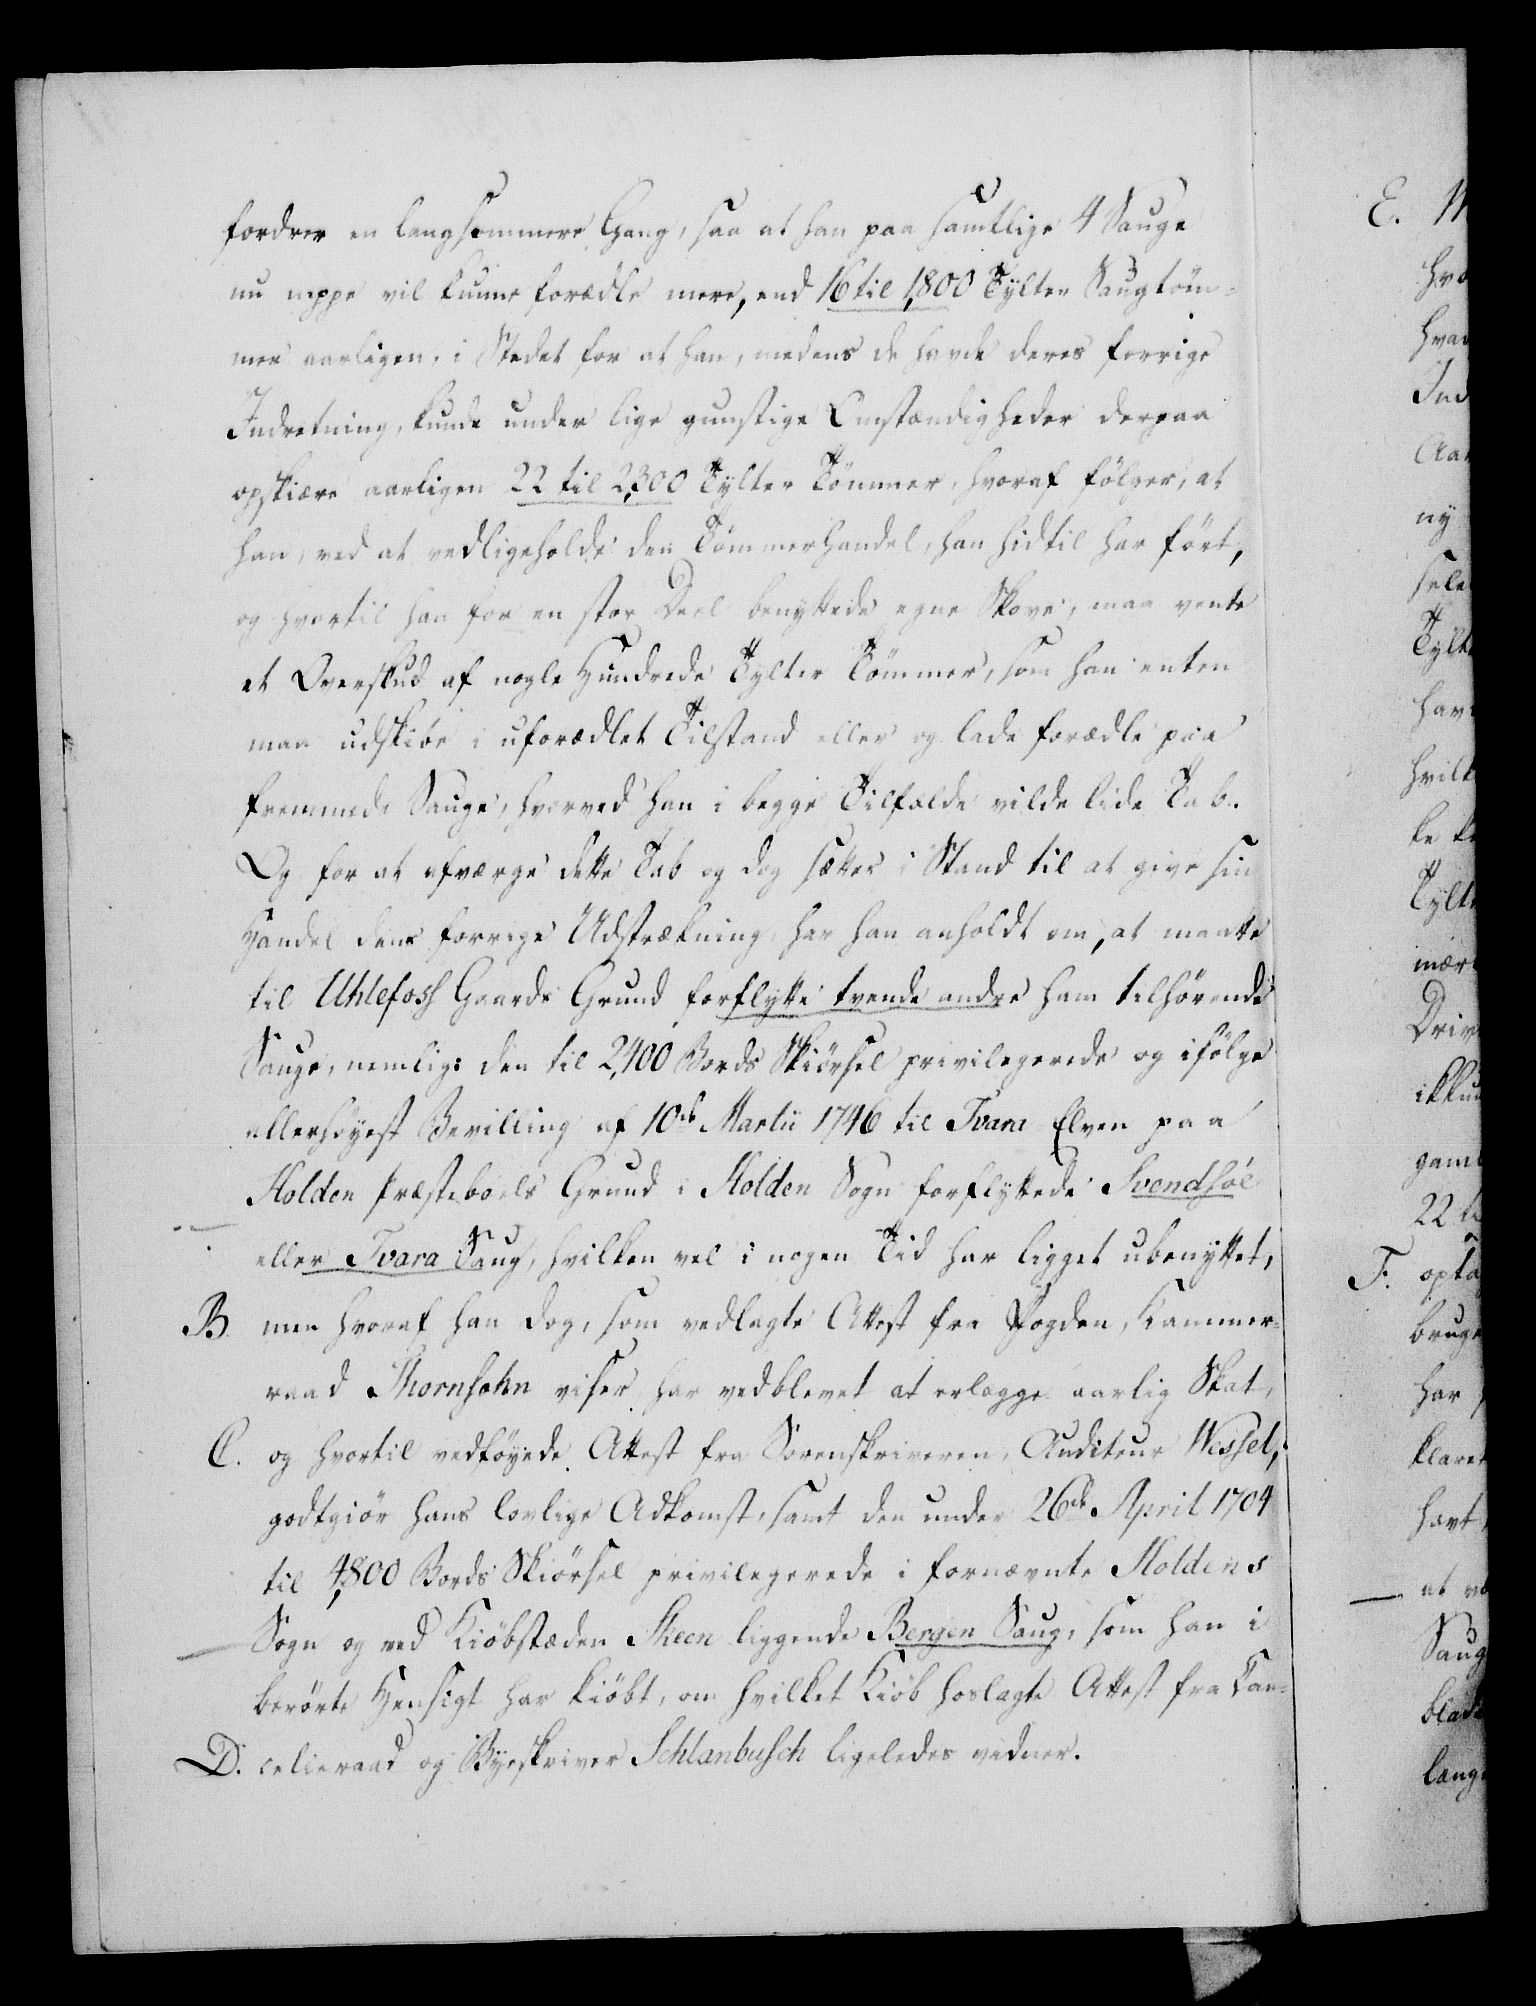 fordrer en langsommere Gang, saa at han paa samtlige 4 Sauge
nu neppe vil kunne forædle mere, end 16 til 1,800 Tylter Saugtöm-
mer aarligen, i Stedet for at han, medens de havde deres forrige
Indretning, kunde under lige gunstige Omstændigheder derpaa
opskiære aarligen 22 til 2,300 Tylter Tömmer, hvoraf fölger, at
han, ved at vedligeholde den Tömmerhandel, han hidtil har fört,
og hvortil han for en stor Deel benyttede egne Skove, maa vente
et Overskud af nogle Hundrede Tylter Tömmer, som han enten
maa udskibe i uforædlet Tilstand eller og lade forædle paa
fremmede Sauge, hvorved han i begge Tilfælde vilde lide Tab.
Og for at afværge dette Tab og dog sættes i Stand til at give sin
Handel dens forrige Udstrækning, har han anholdt om, at maatte
til Uhlefoss Gaards Grund forflytte tvende andre ham tilhörende
Sauge, nemlig: den til 2,400 Bords Skiörsel privilegerede og ifölge
allerhöyest Bevilling af 10de Martii 1746 til Tvara Elven paa
Holden Præsteboels Grund i Holden Sogn forflyttede Svendsöe
eller Tvara Saug, hvilken vel i nogen Tid har ligget ubenyttet,
B. men hvoraf han dog, som vedlagte Attest fra Fogden, Kammer-
raad Thornsohn viser har vedblevet at erlægge aarlig Skat,
C. og hvortil vedföyede Attest fra Sorenskriveren, Auditeur Wessel,
godtgiör hans lovlige Adkomst, samt den under 26de April 1704
til 4,800 Bords Skiörsel privilegerede i fornævnte Holdens
Sogn og ved Kiöbstæden Skeen liggende Bergen Saug, som han i
berörte Hensigt har kiöbt, om hvilket Kiöb hoslagte Attest fra Can-
D. celieraad og Byeskriver Schlanbusch ligeledes vidner.
E.
ny
F.
har